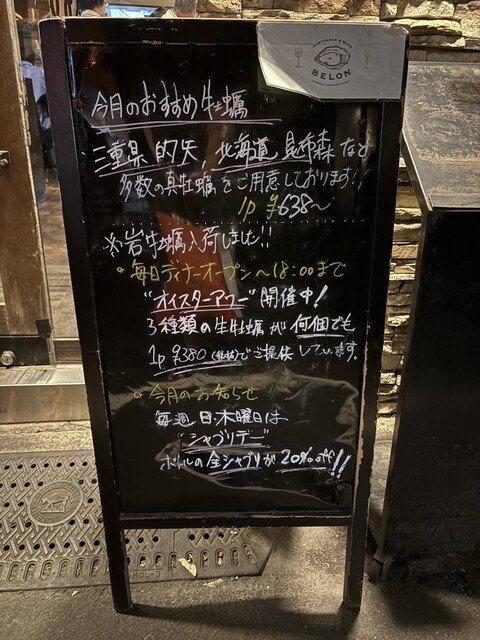 BELON
今月のおすすめ牡蠣
三重県 的矢, 北海道 昆布森 など
多数の真牡蠣をご用意しております!!
1p ¥638〜
※岩牡蠣入荷しました!!
• 毎日ディナーオープン〜18:00まで
"オイスターアワー" 開催中!
3種類の生牡蠣が何個でも
1p ¥380(税抜)でご提供しています。
• 今月のお知らせ
毎週 日・木曜日は
"シャブリデー"
ボトルの全シャブリが20%off!!